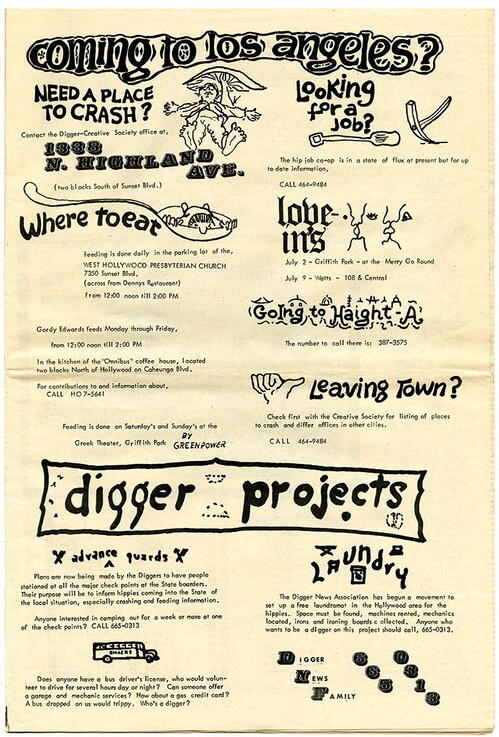 coming to los angeles?
NEED A PLACE
TO CRASH?
Contact the Digger-Creative Society office at,
1338
N. HIGHLAND
AVE.
(two blocks South of Sunset Blvd.)
Looking
for a
job?
The hip job co-op is in a state of flux at present but for up
to date information,
CALL 464-9484
Where to eat
Feeding is done daily in the parking lot of the,
WEST HOLLYWOOD PRESBYTERIAN CHURCH
7350 Sunset Blvd.
(across from Dennys Restaurant)
from 12:00 noon till 2:00 PM
Gordy Edwards feeds Monday through Friday,
from 12:00 noon till 2:00 PM
In the kitchen of the "Omnibus" coffee house, located
two blocks North of Hollywood on Cahuenga Blvd.
For contributions to and information about,
CALL HO 7-5641
Feeding is done on Saturday's and Sunday's at the
Greek Theater, Griffith Park
BY
GREEN POWER
love-
in's
July 2 - Griffith Park - at the Merry Go Round
July 9 - Watts - 108 & Central
Going to Haight-A.
The number to call there is; 387-3575
Leaving Town?
Check first with the Creative Society for listing of places
to crash and differ offices in other cities.
CALL 464-9484
digger projects
advance guards
Plans are now being made by the Diggers to have people
stationed at all the major check points at the State boarders.
Their purpose will be to inform hippies coming into the State of
the local situation, especially crashing and feeding information.
Anyone interested in camping out for a week or more at one
of the check points? CALL 665-0313
DIGGERS
Does anyone have a bus driver's license, who would volun-
teer to drive for several hours day or night? Can someone offer
a garage and mechanic services? How about a gas credit card?
A bus dropped on us would trippy. Who's a digger?
LAUNDRY
The Digger News Association has begun a movement to
set up a free laundromat in the Hollywood area for the
hippies. Space must be found, machines rented, mechanics
located, irons and ironing boards collected. Anyone who
wants to be a digger on this project should call, 665-0313.
DIGGER
NEWS
FAMILY
665 0313